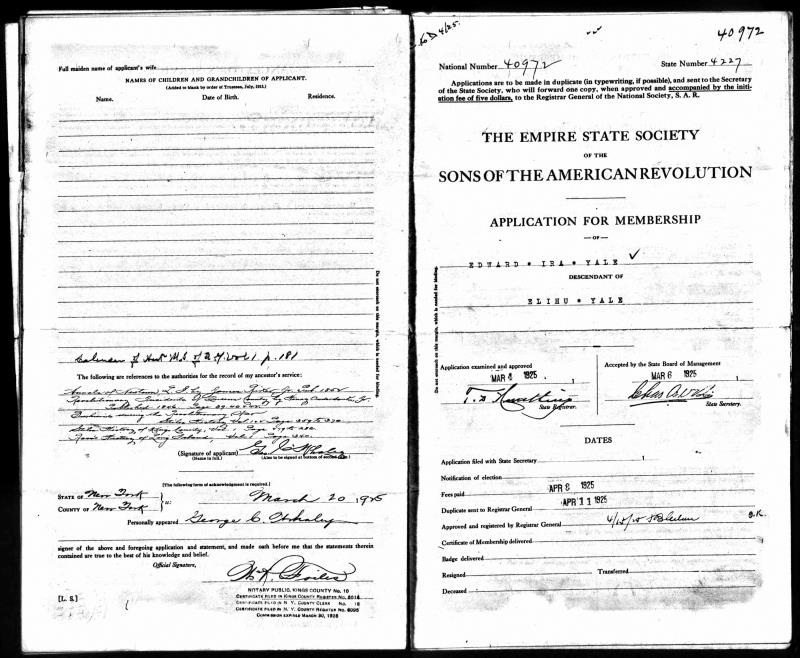 Full maiden name of applicant's wife
NAMES OF CHILDREN AND GRANDCHILDREN OF APPLICANT.
(Added to blank by order of Trustees, July, 1913.)
Name. Date of Birth. Residence.
Do not encroach on this margin, which is needed for binding.
Calendar of Hist MS of N Y. Vol 1 p. 181
The following are references to the authorities for the record of my ancestor's service:
Annals of Newtown L. I. by James Riker Jr. Pub 1852
Revolutionary Incidents of Queens County by Henry Onderdonk Jr.
(Signature of applicant) Geo C Whaley
(Name in full.) (Also to be signed at bottom of second page.)
[The following form of acknowledgment is required.]
STATE OF New York
COUNTY OF New York ss: March 20, 1925
Personally appeared George C. Whaley
signer of the above and foregoing application and statement, and made oath before me that the statements therein
contained are true to the best of his knowledge and belief.
Official Signature,
[L. S.]
NOTARY PUBLIC, KINGS COUNTY NO. 10
CERTIFICATE FILED IN KINGS COUNTY REGISTER NO. 5016
CERTIFICATE FILED IN N. Y. COUNTY CLERK NO. 18
CERTIFICATE FILED IN N. Y. COUNTY REGISTER NO. 6095
COMMISSION EXPIRES MARCH 30, 1925
40972
National Number 40972 State Number 4227
Applications are to be made in duplicate (in typewriting, if possible), and sent to the Secretary
of the State Society, who will forward one copy, when approved and accompanied by the initi-
ation fee of five dollars, to the Registrar General of the National Society, S. A. R.
THE EMPIRE STATE SOCIETY
OF THE
SONS OF THE AMERICAN REVOLUTION
APPLICATION FOR MEMBERSHIP
— OF —
EDWARD * IRA * YALE
DESCENDANT OF
ELIHU * YALE
Do not encroach on this margin, which is needed for binding.
Application examined and approved
MAR 4 1925
State Registrar.
Accepted by the State Board of Management
MAR 6 1925
State Secretary.
DATES
Application filed with State Secretary
Notification of election
Fees paid APR 8 1925
Duplicate sent to Registrar General APR 11 1925
Approved and registered by Registrar General
Certificate of Membership delivered
Badge delivered
Resigned Transferred
Deceased